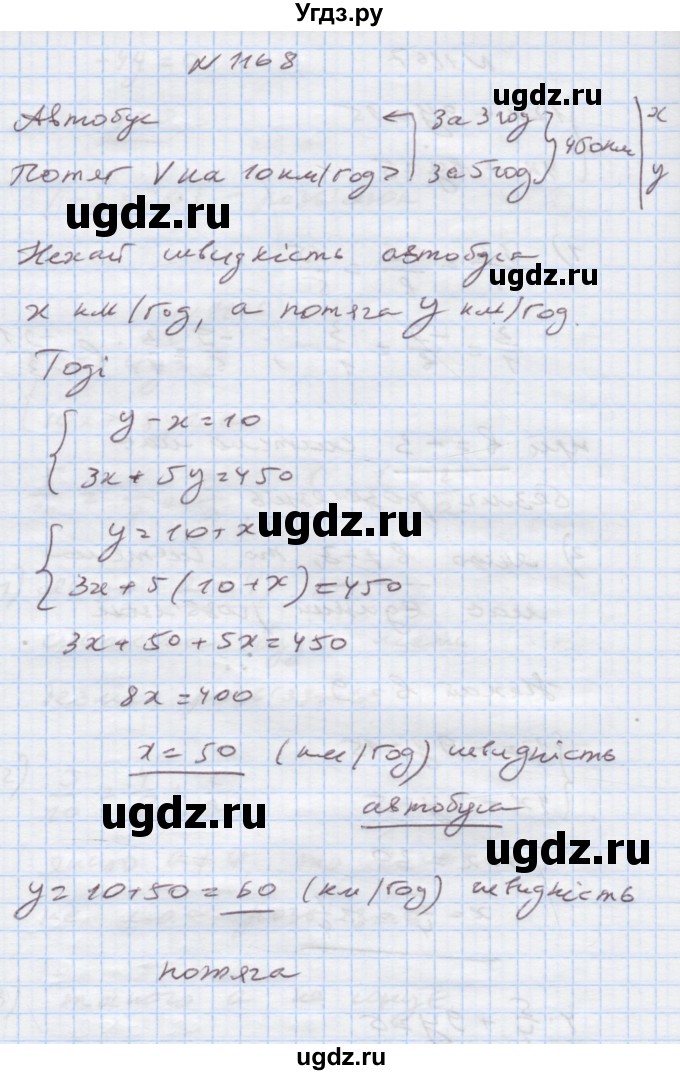 Угдз.ру
N 1168
ugdz.ru
Автобус ← за 3 год } 450км | x
Потяг V на 10 км/год > за 5 год | y
ugdz.ru
Нехай швидкість автобуса
ugdz.ru
x км/год, а потяга y км/год.
Тоді
{ y-x=10
3x+5y=450
ugdz.ru
{ y=10+x
3x+5(10+x)=450
3x+50+5x=450
8x=400
x=50 (км/год) швидкість
ugdz.ru
автобуса
ugdz.ru
y=10+50=60 (км/год) швидкість
потяга
ugdz.ru